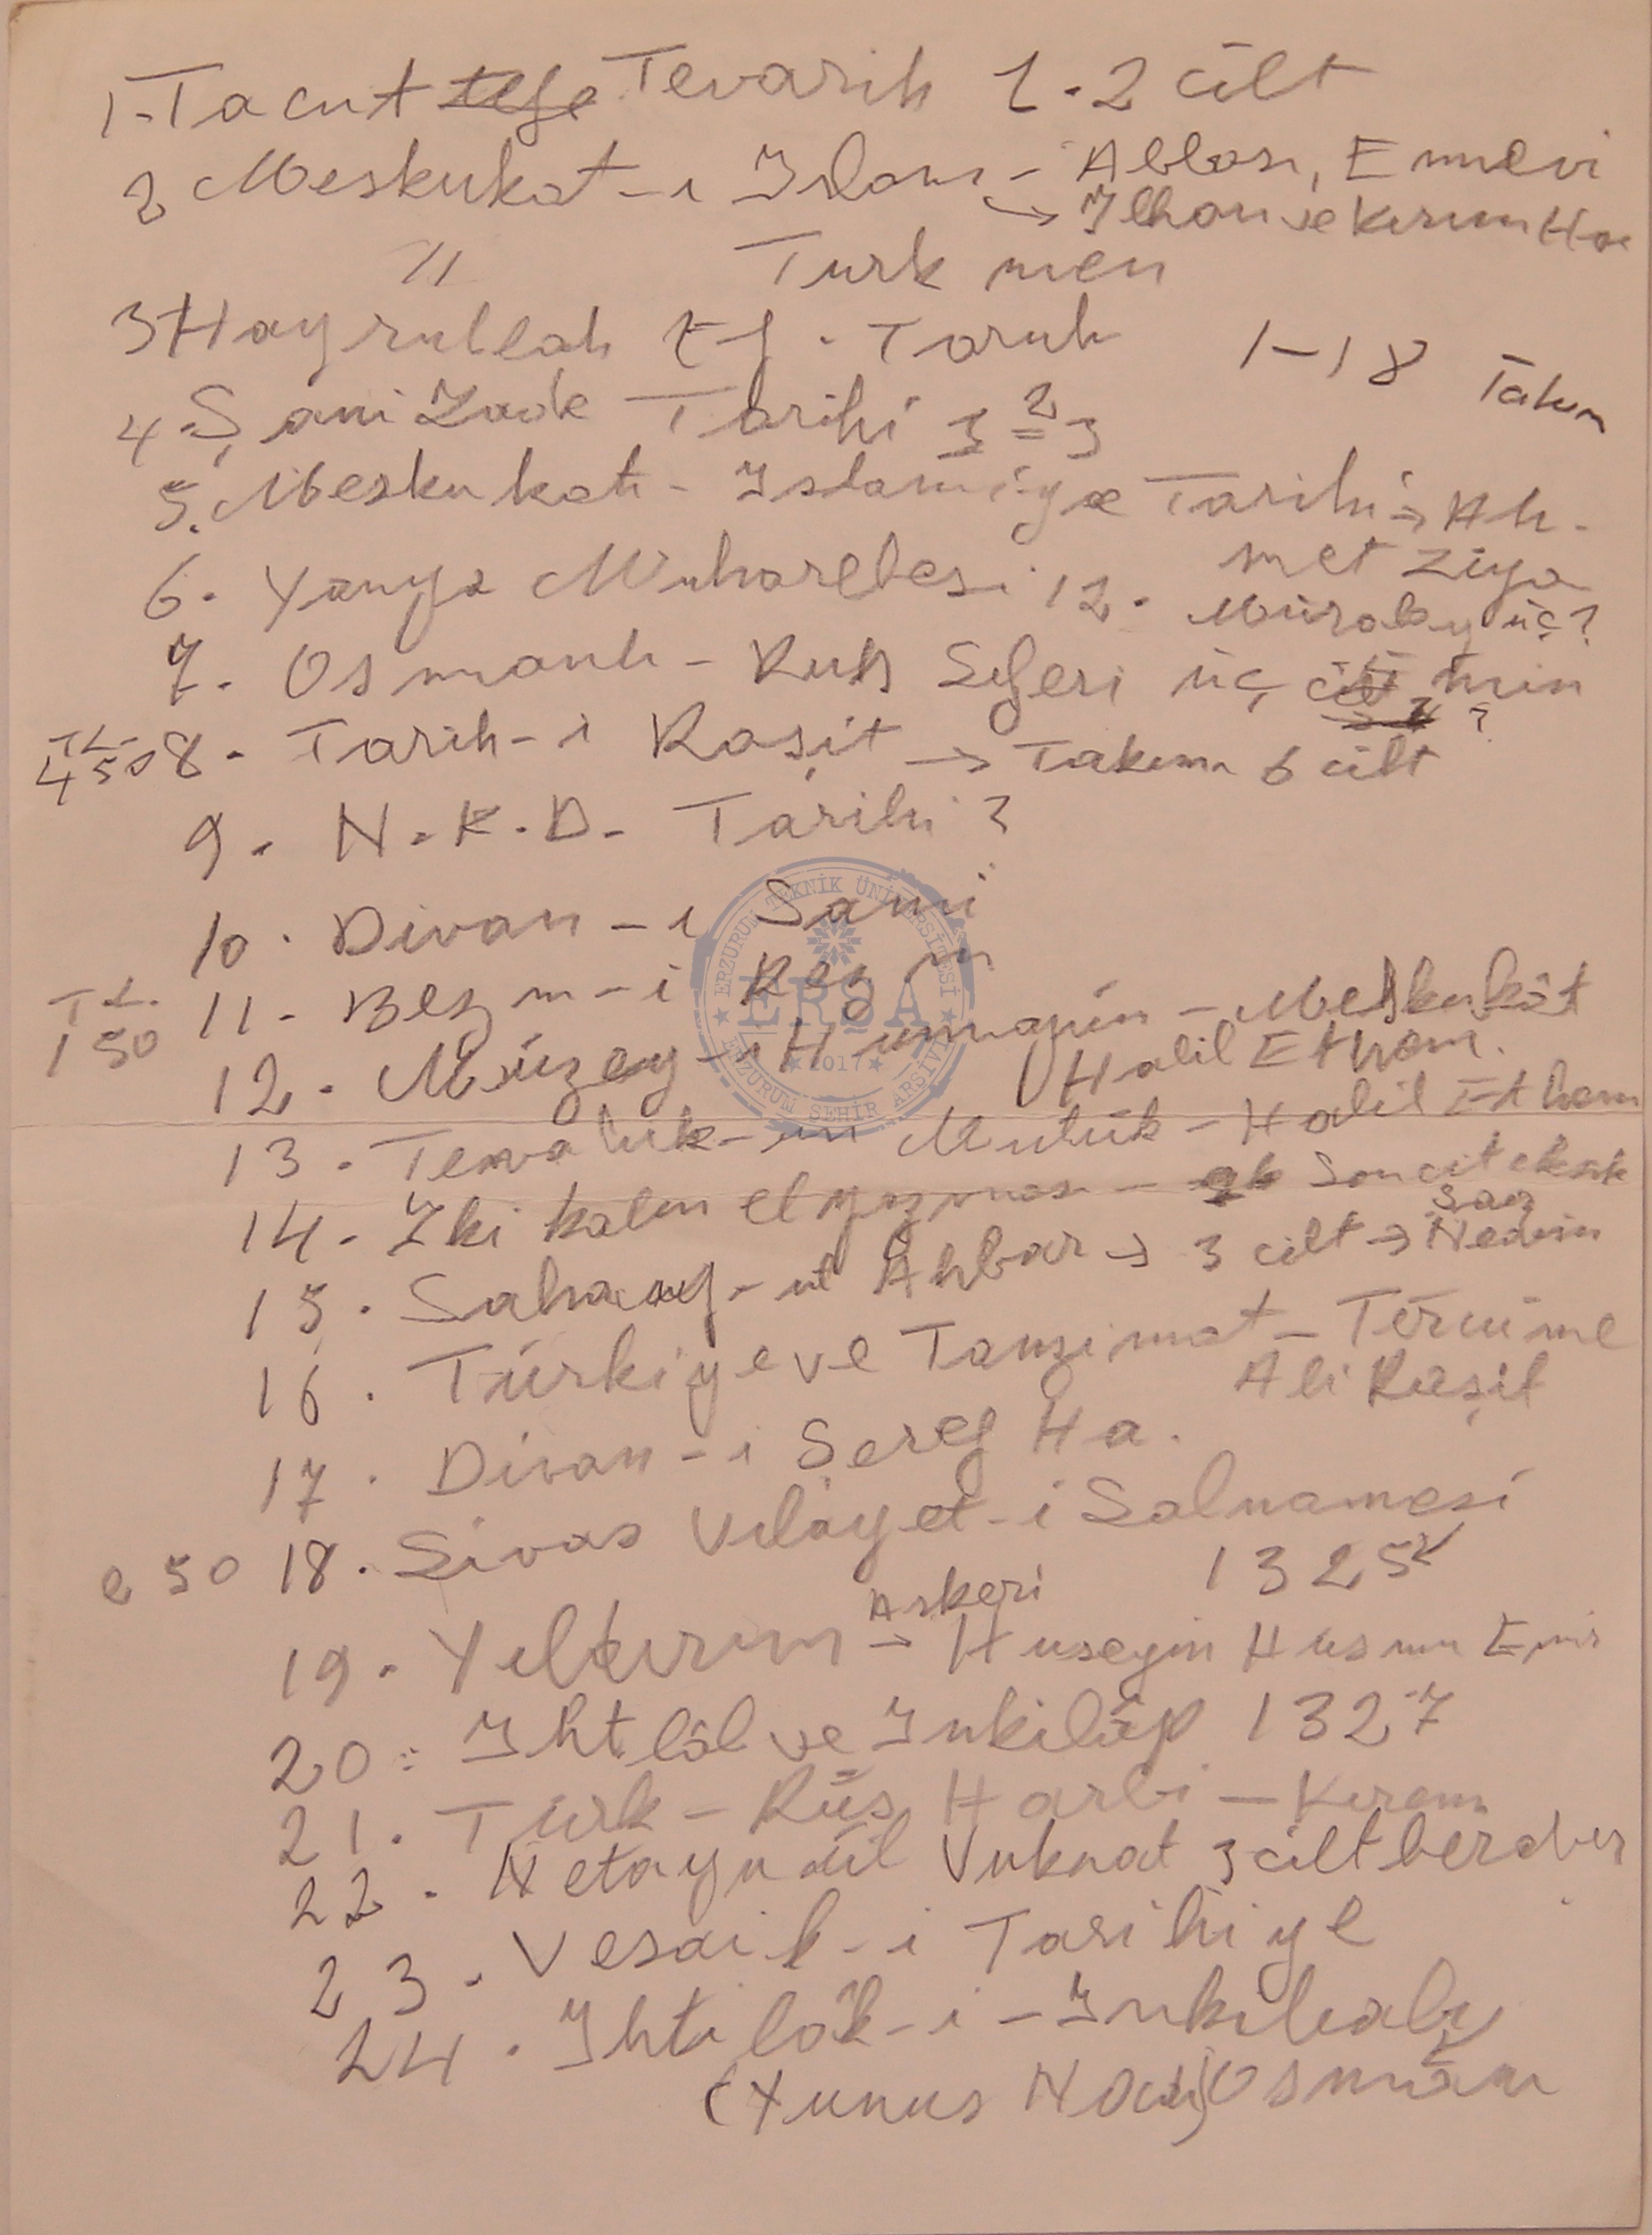 1-Tacut Tevarih 1-2 cilt
2 Meskukat-ı İslam - Abbası, Emevi
→ İlhan ve Kırım Ha
" Turkmen
3 Hayrullah Ef. Tarıh 1-18 Takım
4. Şani Zade Tarihi 3 2 = 3
5. Meskukatı - İslamiye Tarihi → Ah-
met Ziya
6. Yanya Muharebesi 12.
7. Osmanlı - Rus Seferi üç cilt
TL- 450 8 - Tarih-i Raşit → Takım 6 cilt
9. N.K.D. Tarihi ?
10. Divan-ı Sami
TL. 150 11- Bezm-i Rezm
12. Müzey-i Humayün - Meskukât
Halil Ethem.
13. - Mülük - Halil Ethem
14. İki kalın el yazması - Son cilt eksik
15. Sahayf-ul Ahbar → 3 cilt → Nedim
16. Türkiye ve Tanzimat - Tercüme
Ali Raşit
17. Divan-ı Şeref Ha.
50 18. Sivas Vılayet-i Salnamesi
1325
19. Yıldırım → Askeri Huseyin Husnu Emir
20. İhtilâl ve İnkilâp 1327
21. Türk - Rus Harbi - Kırım
22. Netayıcül Vukuat 3 cilt beraber
23. Vesaik-i Tarihiye
24. İhtilâl-i - İnkılabı
(Yunus Nadi) Osmanı
ERZURUM TEKNİK ÜNİVERSİTESİ
ERŞA
2017
ERZURUM ŞEHİR ARŞİVİ